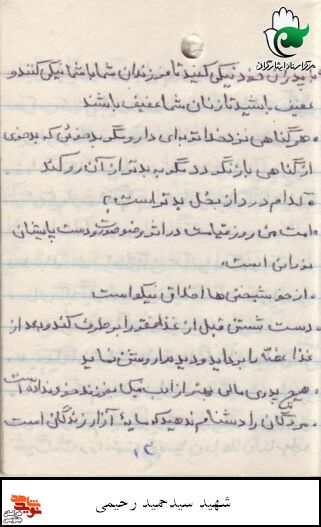 مرکز اسناد ایثارگران
با پدران خود نیکی کنید تا فرزندان شما با شما نیکی کنند و
عفیف باشید تا زنان شما عفیف باشند
• هر گناهی نزد خدا توبه‌ای دارد مگر بدخوئی که بدخوی
از گناهی باز نگردد مگر به بدتر از آن رو کند
• کدام درد از بخل بدتر است؟
• امت من روز قیامت در اثر وضو صورت و دست و پایشان
نورانی است
• از خوشبختی ها اخلاق نیکو است
• دست شستن قبل از غذا فقر را برطرف کند و بعد از
غذا غصه را بزداید و دیده را روشن نماید
• هیچ پدری مالی بهتر از ادب نیک بفرزند خود نداده است
• مردگان را دشنام ندهید که مایهٔ آزار زندگان است
۱۳
شهید سیدحمید رحیمی